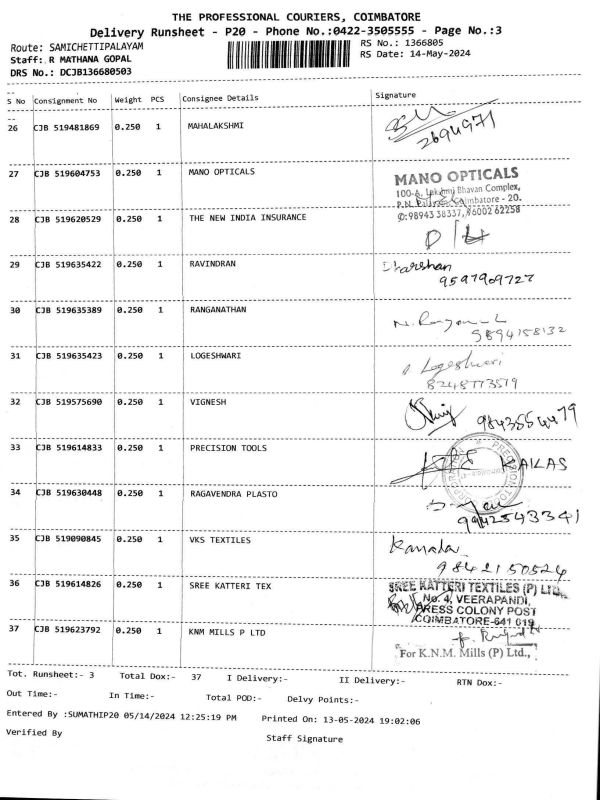 THE PROFESSIONAL COURIERS, COIMBATORE
Delivery Runsheet - P20 - Phone No.:0422-3505555 - Page No.:3
Route: SAMICHETTIPALAYAM RS No.: 1366805
Staff: R MATHANA GOPAL RS Date: 14-May-2024
DRS No.: DCJB136680503
S No Consignment No Weight PCS Consignee Details Signature
26 CJB 519481869 0.250 1 MAHALAKSHMI
2694971
27 CJB 519604753 0.250 1 MANO OPTICALS
MANO OPTICALS
100-A, Lakshmi Bhavan Complex,
Coimbatore - 20.
✆:98943 38337, 96002 62258
28 CJB 519620529 0.250 1 THE NEW INDIA INSURANCE
29 CJB 519635422 0.250 1 RAVINDRAN
Dharshan
9597909727
30 CJB 519635389 0.250 1 RANGANATHAN
9894158132
31 CJB 519635423 0.250 1 LOGESHWARI
Logeshwari
8248773579
32 CJB 519575690 0.250 1 VIGNESH
9843554479
33 CJB 519614833 0.250 1 PRECISION TOOLS
KAILAS
34 CJB 519630448 0.250 1 RAGAVENDRA PLASTO
9942543341
35 CJB 519090845 0.250 1 VKS TEXTILES
Kamala
9842150524
36 CJB 519614826 0.250 1 SREE KATTERI TEX
SREE KATTERI TEXTILES (P) LTD.,
No. 4, VEERAPANDI,
PRESS COLONY POST
COIMBATORE-641 019
37 CJB 519623792 0.250 1 KNM MILLS P LTD
For K.N.M. Mills (P) Ltd.,
Tot. Runsheet:- 3 Total Dox:- 37 I Delivery:- II Delivery:- RTN Dox:-
Out Time:- In Time:- Total POD:- Delvy Points:-
Entered By :SUMATHIP20 05/14/2024 12:25:19 PM Printed On: 13-05-2024 19:02:06
Verified By Staff Signature